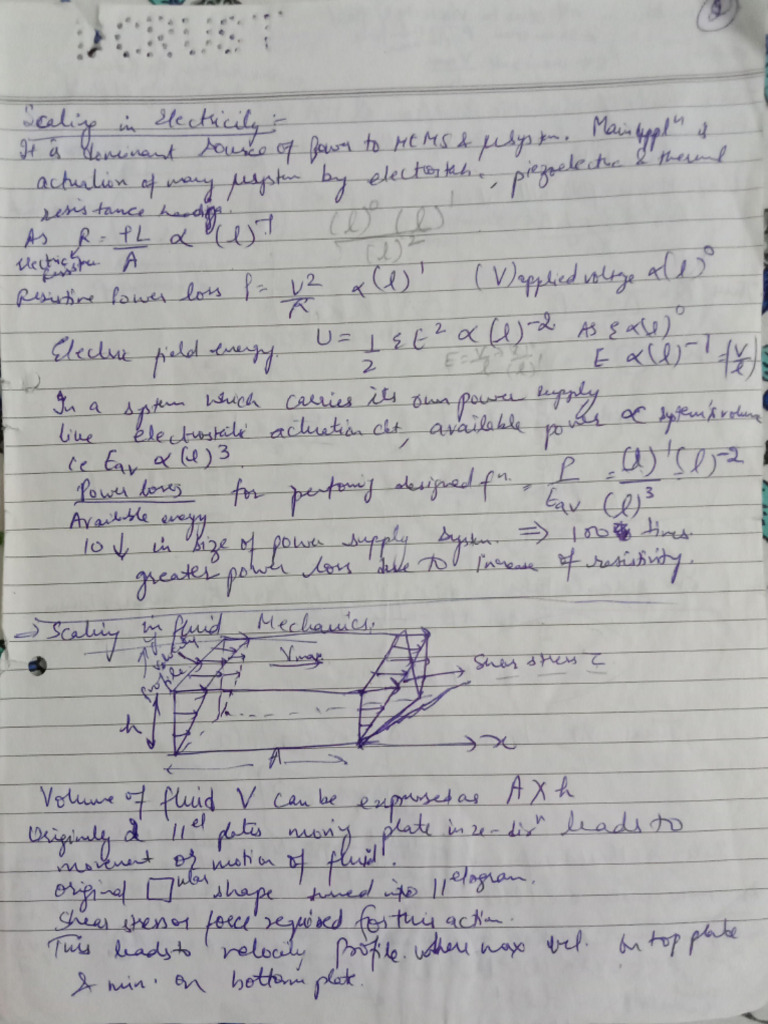 DCRUST
2
Scaling in Electricity :-
It is dominant source of power to MEMS & μsystem. Main applⁿ is
actuation of many μsystem by electrostat. , piezoelectric & thermal
resistance heading.
As R = ρL/A α (l)⁻¹ (l)⁰ (l)¹ / (l)²
Electrical
Resistive Power loss P = V²/R α (l)¹ (V) applied voltage α (l)⁰
Electric field energy. U = 1/2 ε E² α (l)⁻² As ε α (l)⁰
E α (l)⁻¹ = (V/l)
In a system which carries its own power supply
like electrostatic actuation ckt, available power ∝ system's volume
ie Eav α (l)³
Power loses / Available energy for performing designed fⁿ. = P/Eav = (l)¹/(l)³ = (l)⁻²
10 ↓ in size of power supply system. ⇒ 100 times
greater power loss due to increase of resistivity.
→ Scaling in fluid Mechanics.
velocity profile
Vmax
Shear stress τ
h
A
x
Volume of fluid V can be expressed as A X h
Originally 2 11el plates moving plate in x-dirⁿ leads to
movement or motion of fluid.
original □ular shape turned into 11elogram.
Shear stress or force required for this action.
This leads to velocity profile. where max vel. on top plate
& min. on bottom plate.